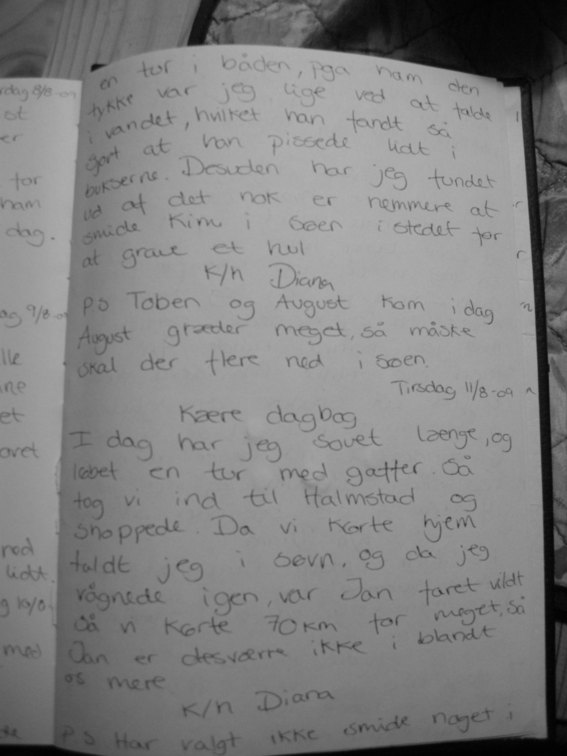 rdag 8/8-09
st
er
for
ham
dag.
ag 9/8-09
lle
ine
et
avet
ned
lidt.
g 10/8
med
en tur i båden, pga ham den
tykke var jeg lige ved at falde
i vandet, hvilket han fandt så
sjovt at han pissede lidt i
bukserne. Desuden har jeg fundet
ud af det nok er nemmere at
smide Kim i søen i stedet for
at grave et hul
K/h Diana
PS Toben og August kom i dag
August græder meget, så måske
skal der flere ned i søen.
Tirsdag 11/8-09
Kære dagbog
I dag har jeg sovet længe, og
løbet en tur med gaffer. Så
tog vi ind til Halmstad og
shoppede. Da vi kørte hjem
faldt jeg i søvn, og da jeg
vågnede igen, var Jan faret vildt
så vi kørte 70 km for meget, så
Jan er desværre ikke i blandt
os mere
K/h Diana
PS Har valgt ikke smide noget i